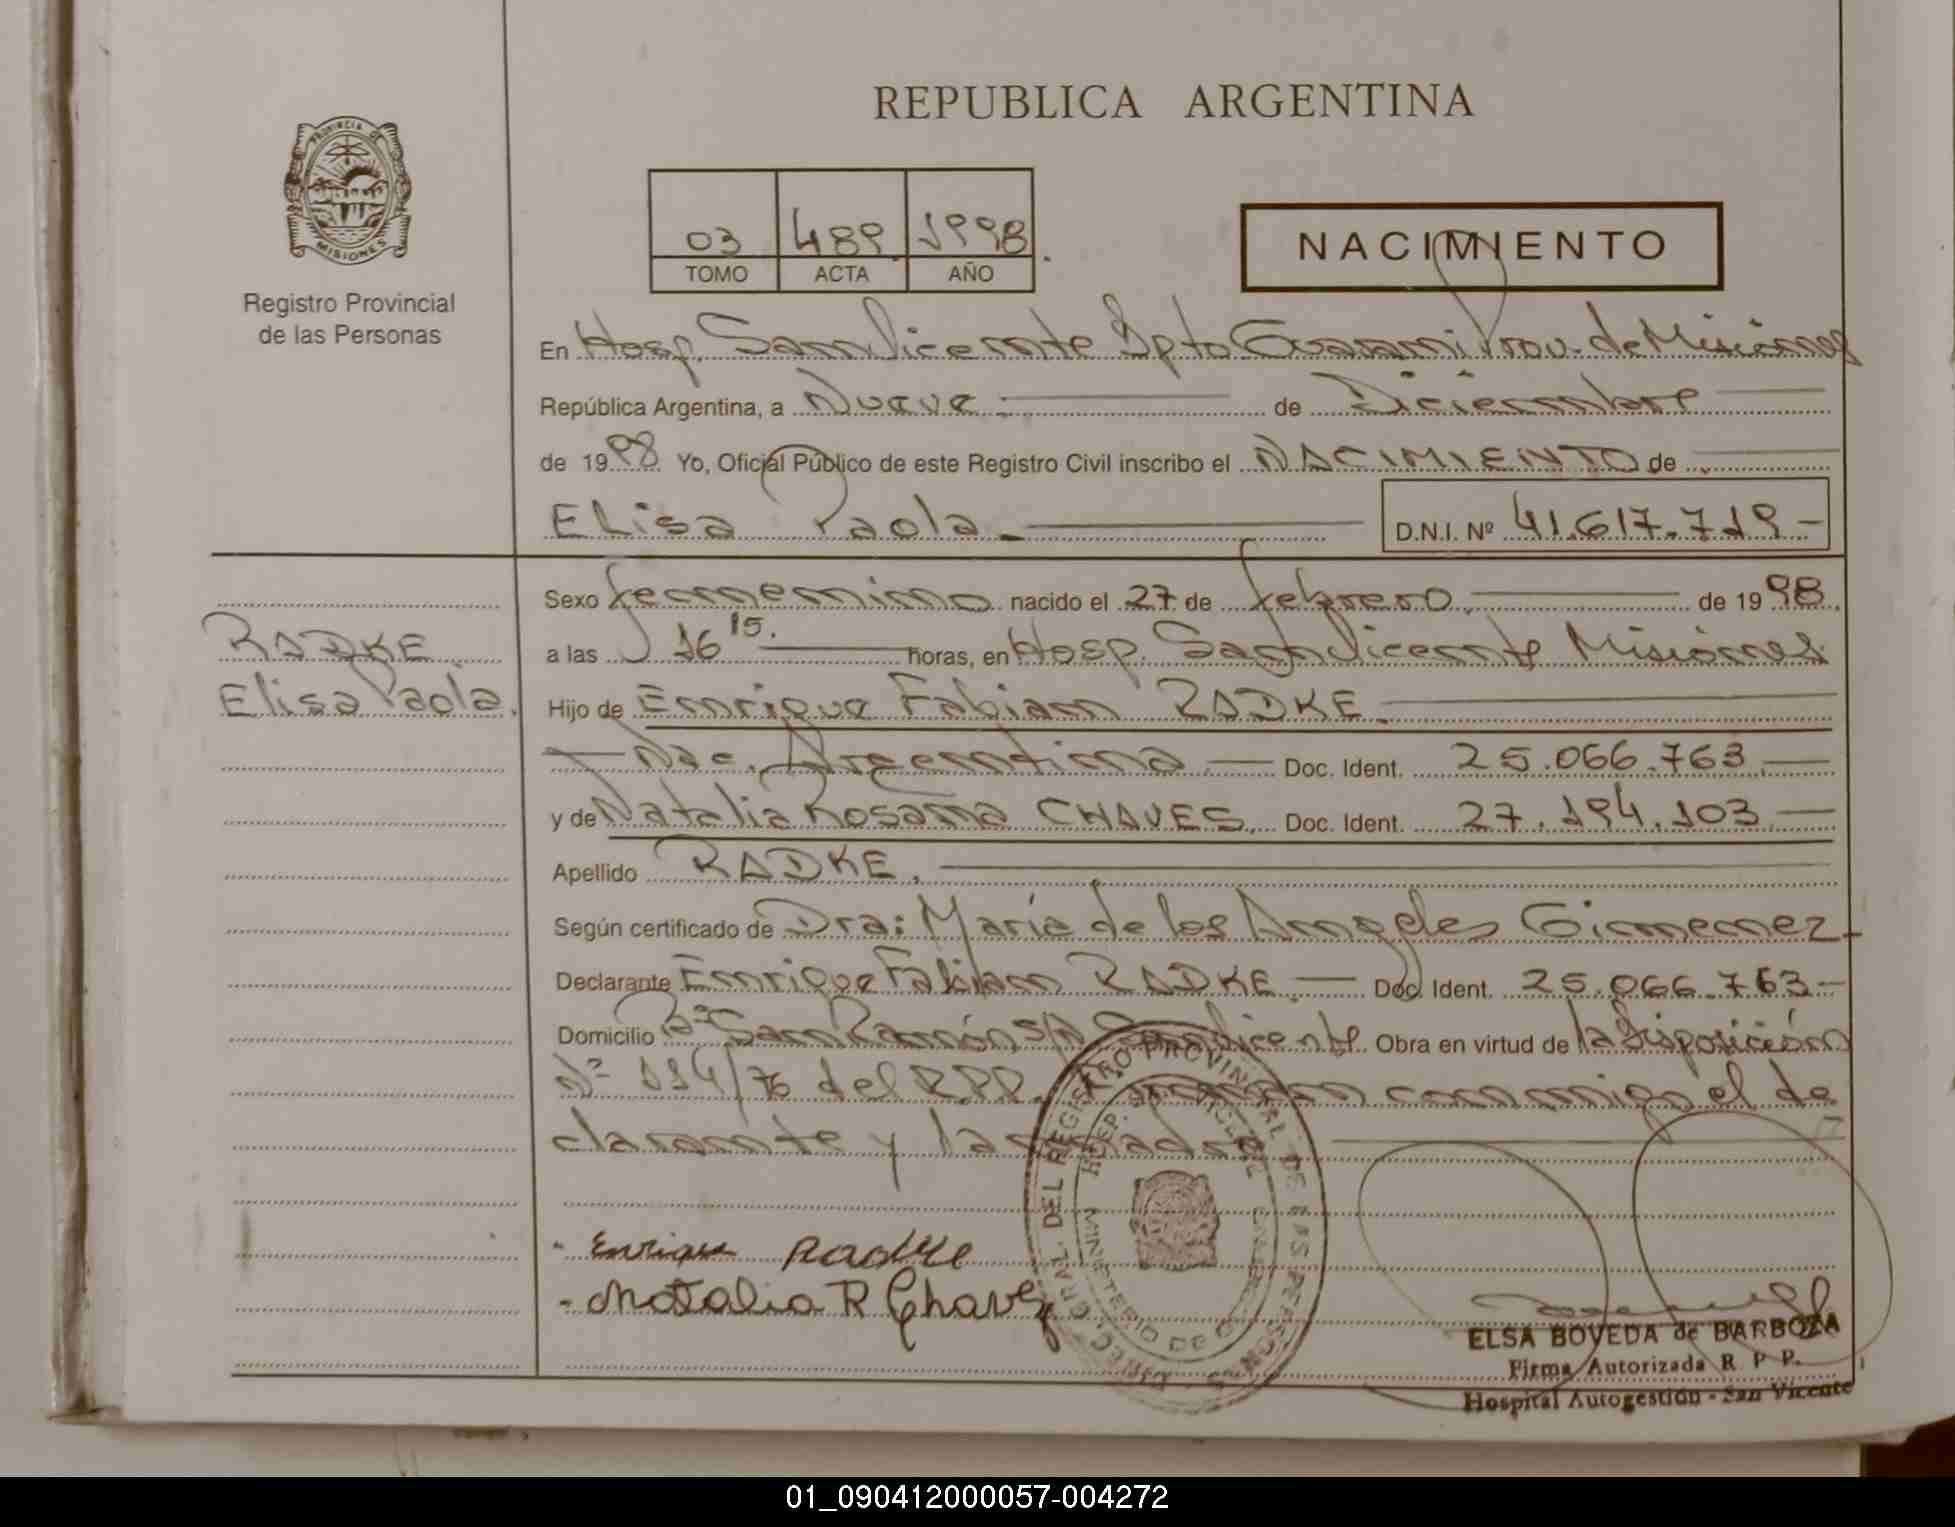 REPUBLICA ARGENTINA
PROVINCIA DE
MISIONES
Registro Provincial
de las Personas
03 489 1998
TOMO ACTA AÑO
NACIMIENTO
En Hosp. San Vicente Dpto Guarani Prov. de Misiones
República Argentina, a Nueve de Diciembre
de 1998 Yo, Oficial Público de este Registro Civil inscribo el NACIMIENTO de
Elisa Paola
D.N.I. Nº 41.617.719-
RADKE
Elisa Paola.
Sexo femenino nacido el 27 de febrero. de 1998.
a las 16 15. horas, en Hosp. San Vicente Misiones
Hijo de Enrique Fabian RADKE.
Nac. Argentina. Doc. Ident. 25.066.763.
y de Natalia Rosana CHAVES. Doc. Ident. 27.194.103.
Apellido RADKE.
Según certificado de Dra: María de los Angeles Gimenez-
Declarante Enrique Fabian RADKE. Doc. Ident. 25.066.763-
Domicilio Bº San Ramón S/N San Vicente. Obra en virtud de la Disposición
Nº 114/76 del R.P.P. Firman conmigo el de
clarante y la madre
Enrique Radke
Natalia R Chavez
DIREC. GRAL. DEL REGISTRO PROVINCIAL DE LAS PERSONAS
HOSP. SAN VICENTE
MINISTERIO DE
ELSA BOVEDA de BARBOZA
Firma Autorizada R. P. P.
Hospital Autogestión - San Vicente
01_090412000057-004272